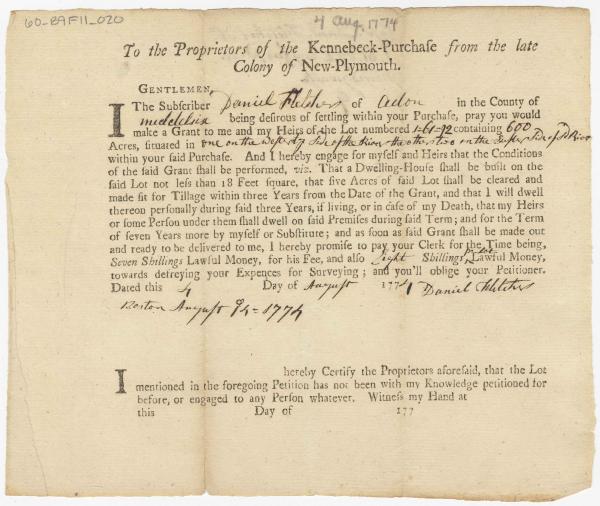 60-B9F11_020
4 Aug. 1774
To the Proprietors of the Kennebeck-Purchaſe from the late
Colony of New-Plymouth.
GENTLEMEN,
I The Subſcriber Daniel Fletcher of Acton in the County of
middelsix being deſirous of ſettling within your Purchaſe, pray you would
make a Grant to me and my Heirs of the Lot numbered containing 600
Acres, ſituated in one on the Side of the River the other two on the Side of River
within your ſaid Purchaſe. And I hereby engage for myſelf and Heirs that the Conditions
of the ſaid Grant ſhall be performed, viz. That a Dwelling-Houſe ſhall be built on the
ſaid Lot not leſs than 18 Feet ſquare, that five Acres of ſaid Lot ſhall be cleared and
made fit for Tillage within three Years from the Date of the Grant, and that I will dwell
thereon perſonally during ſaid three Years, if living, or in caſe of my Death, that my Heirs
or ſome Perſon under them ſhall dwell on ſaid Premiſes during ſaid Term; and for the Term
of ſeven Years more by myſelf or Subſtitute; and as ſoon as ſaid Grant ſhall be made out
and ready to be delivered to me, I hereby promiſe to pay your Clerk for the Time being,
Seven Shillings Lawful Money, for his Fee, and alſo Eight Shillings Lawful Money,
towards defreying your Expences for Surveying; and you'll oblige your Petitioner.
Dated this 4 Day of August 1774 Daniel Fletcher
Boston August 1774
I hereby Certify the Proprietors aforeſaid, that the Lot
mentioned in the foregoing Petition has not been with my Knowledge petitioned for
before, or engaged to any Perſon whatever. Witneſs my Hand at
this Day of 177